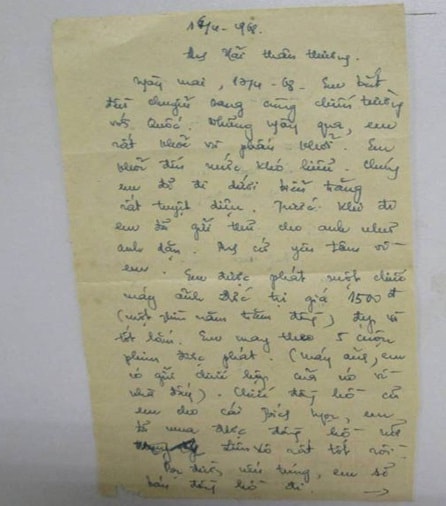 16/4-968.
Anh Hải thân thương.
Ngày mai, 17/4-68. Em bắt
đầu chuyển sang cùng chiến trường
với Quốc. Những ngày qua, em
rất vui và phấn khởi. Em
vui đến mức khó hiểu. Chúng
em đã đi dưới biển trăng
rất tuyệt diệu. Trước khi đi
em đã gửi thư cho anh như
anh dặn. Anh cứ yên tâm về
em. Em được phát một chiếc
máy ảnh Đức trị giá 1500đ
(một nghìn năm trăm đồng) đẹp và
tốt lắm. Em mang theo 5 cuộn
phim được phát. (máy ảnh, em
có gửi chiếc hộp của nó về
nhà đấy). Chiếc đồng hồ cũ
em cho cái Bích Ngọc, em
đã mua được đồng hồ mới
Liên Xô rất tốt rồi.
Dọc đường nếu túng, em sẽ
bán đồng hồ đi.
→